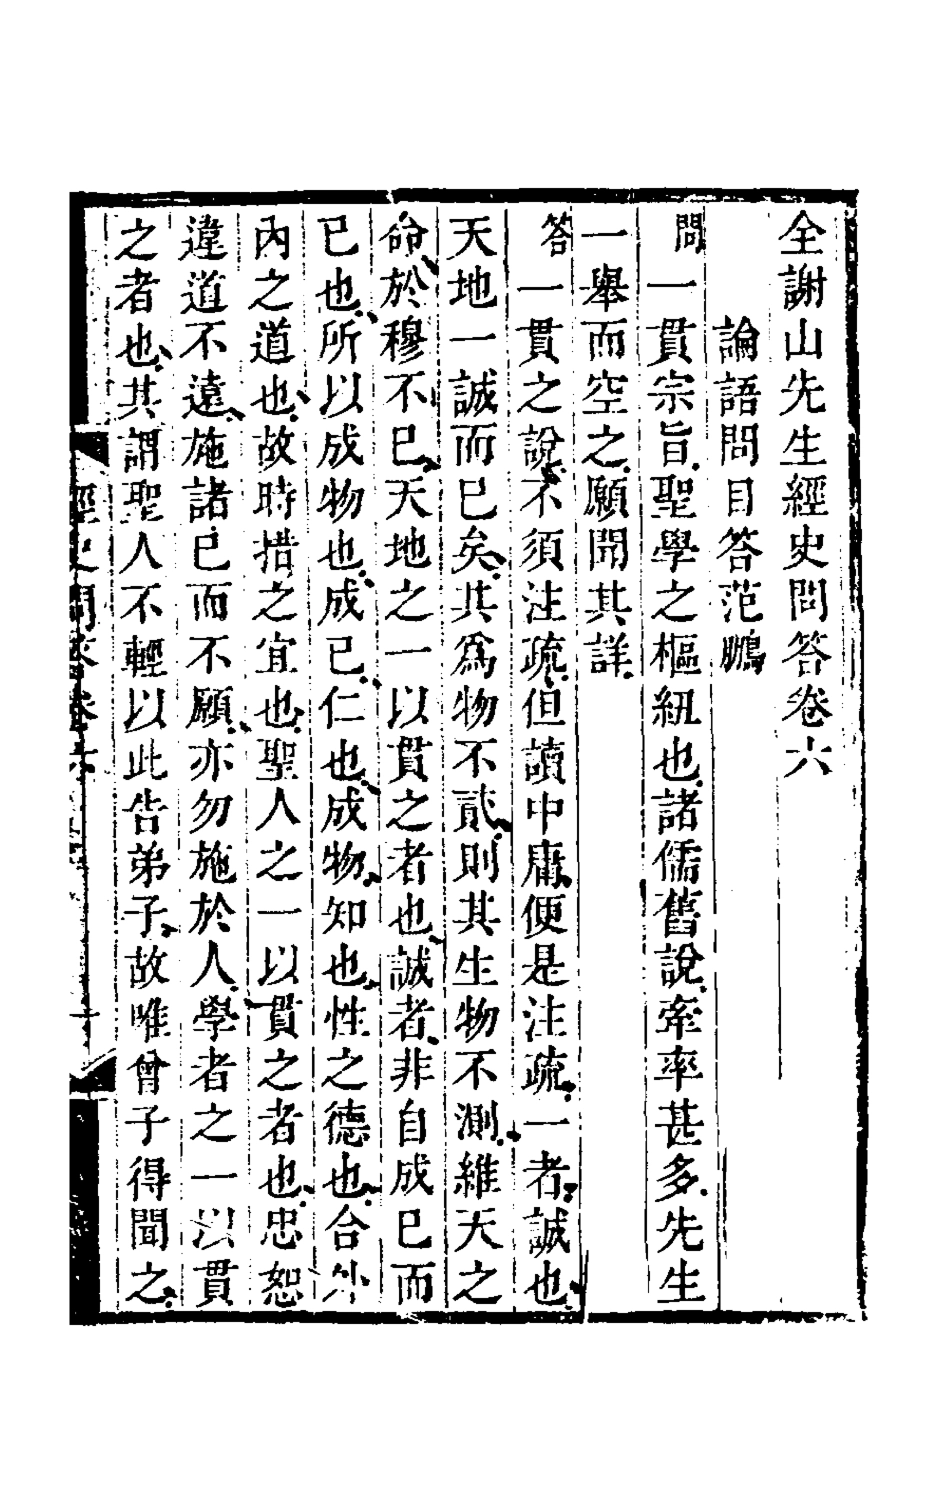 全謝山先生經史問答卷六
論語問目答范鵬
問一貫宗旨聖學之樞紐也諸儒舊說牽率甚多先生
一舉而空之願聞其詳
答一貫之說不須注疏但讀中庸便是注疏一者誠也
天地一誠而已矣其爲物不貳則其生物不測維天之
命於穆不已天地之一以貫之者也誠者非自成已而
已也所以成物也成已仁也成物知也性之德也合外
內之道也故時措之宜也聖人之一以貫之者也忠恕
違道不遠施諸已而不願亦勿施於人學者之一以貫
之者也其謂聖人不輕以此告弟子故唯曾子得聞之
經史問答卷六